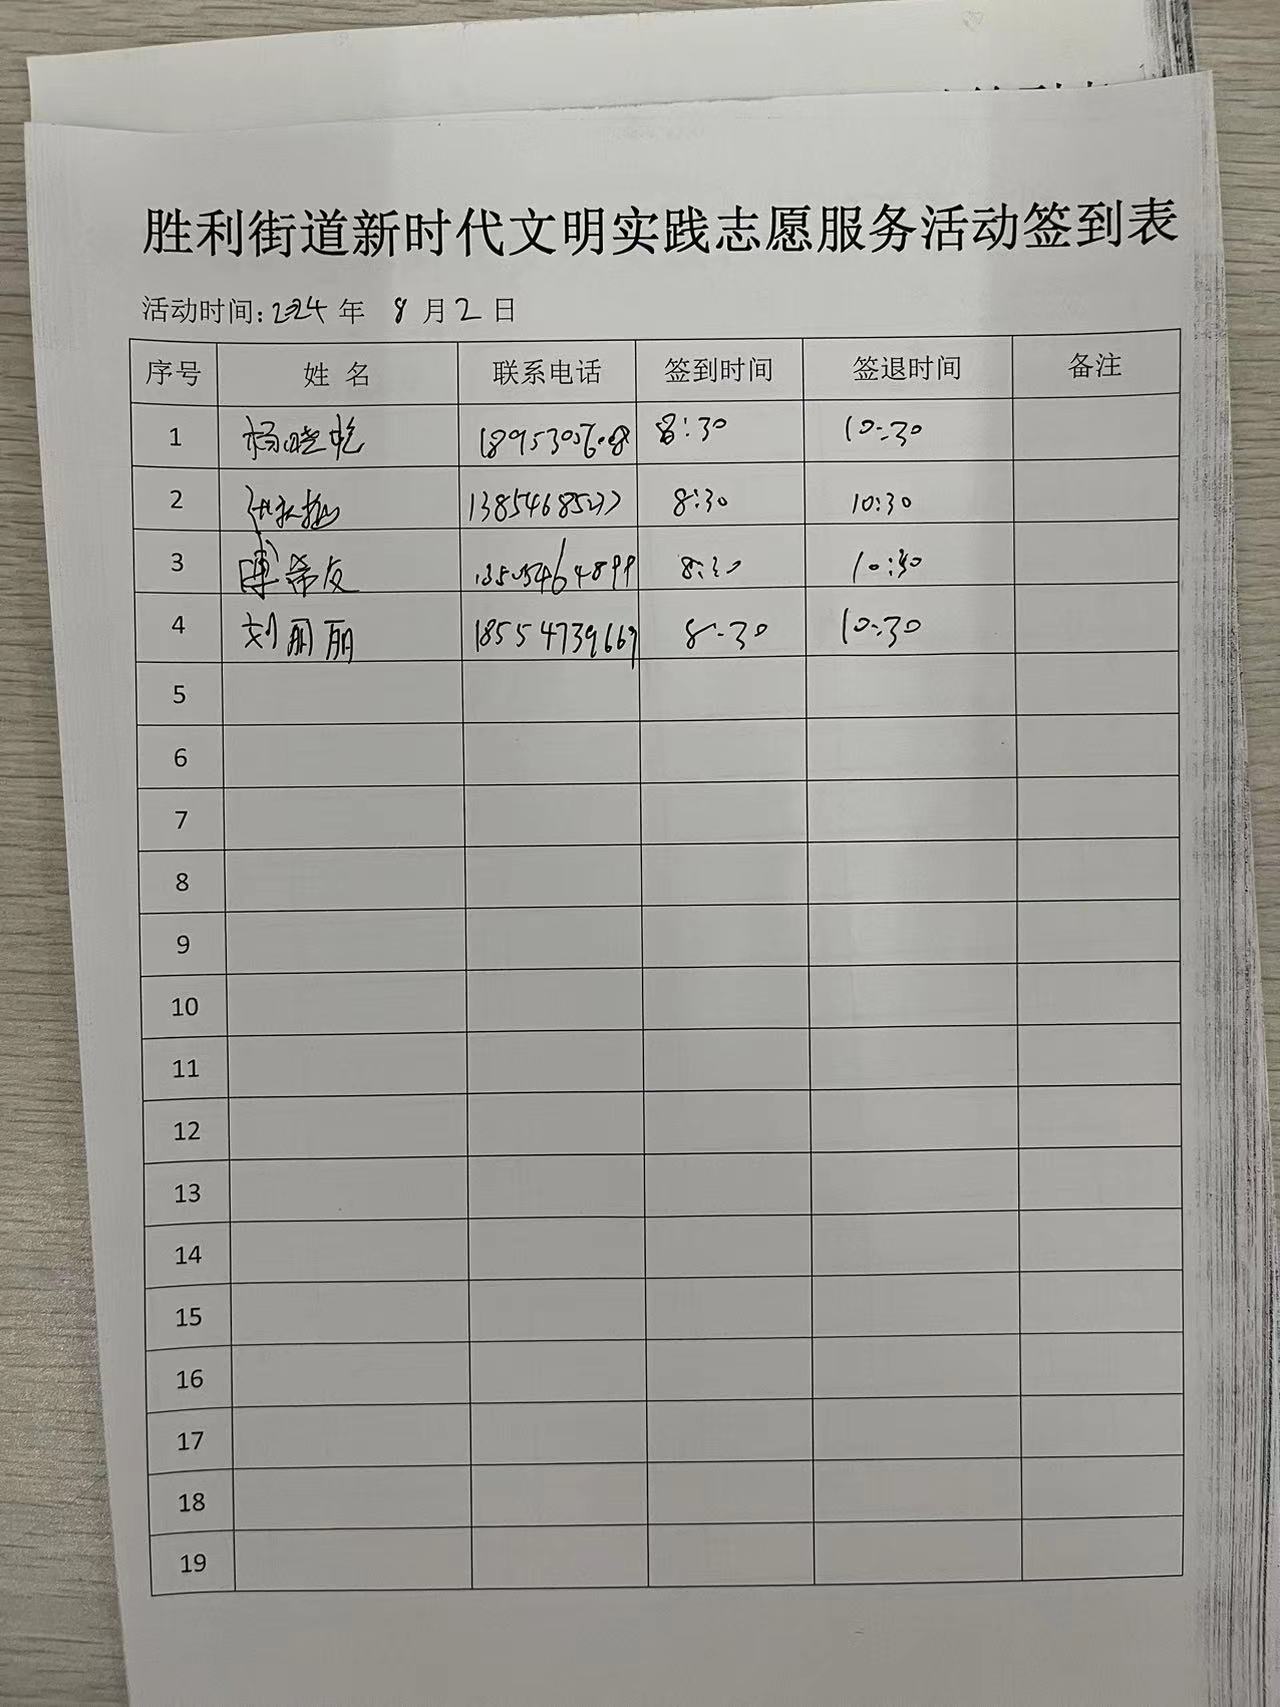 胜利街道新时代文明实践志愿服务活动签到表
活动时间: 2024 年 8 月 2 日
序号 姓 名 联系电话 签到时间 签退时间 备注
1 杨晓乾 18953057608 8:30 10:30
2 8:30 10:30
3 傅希友 13505464899 8:30 10:30
4 刘丽丽 18554739669 8:30 10:30
5
6
7
8
9
10
11
12
13
14
15
16
17
18
19